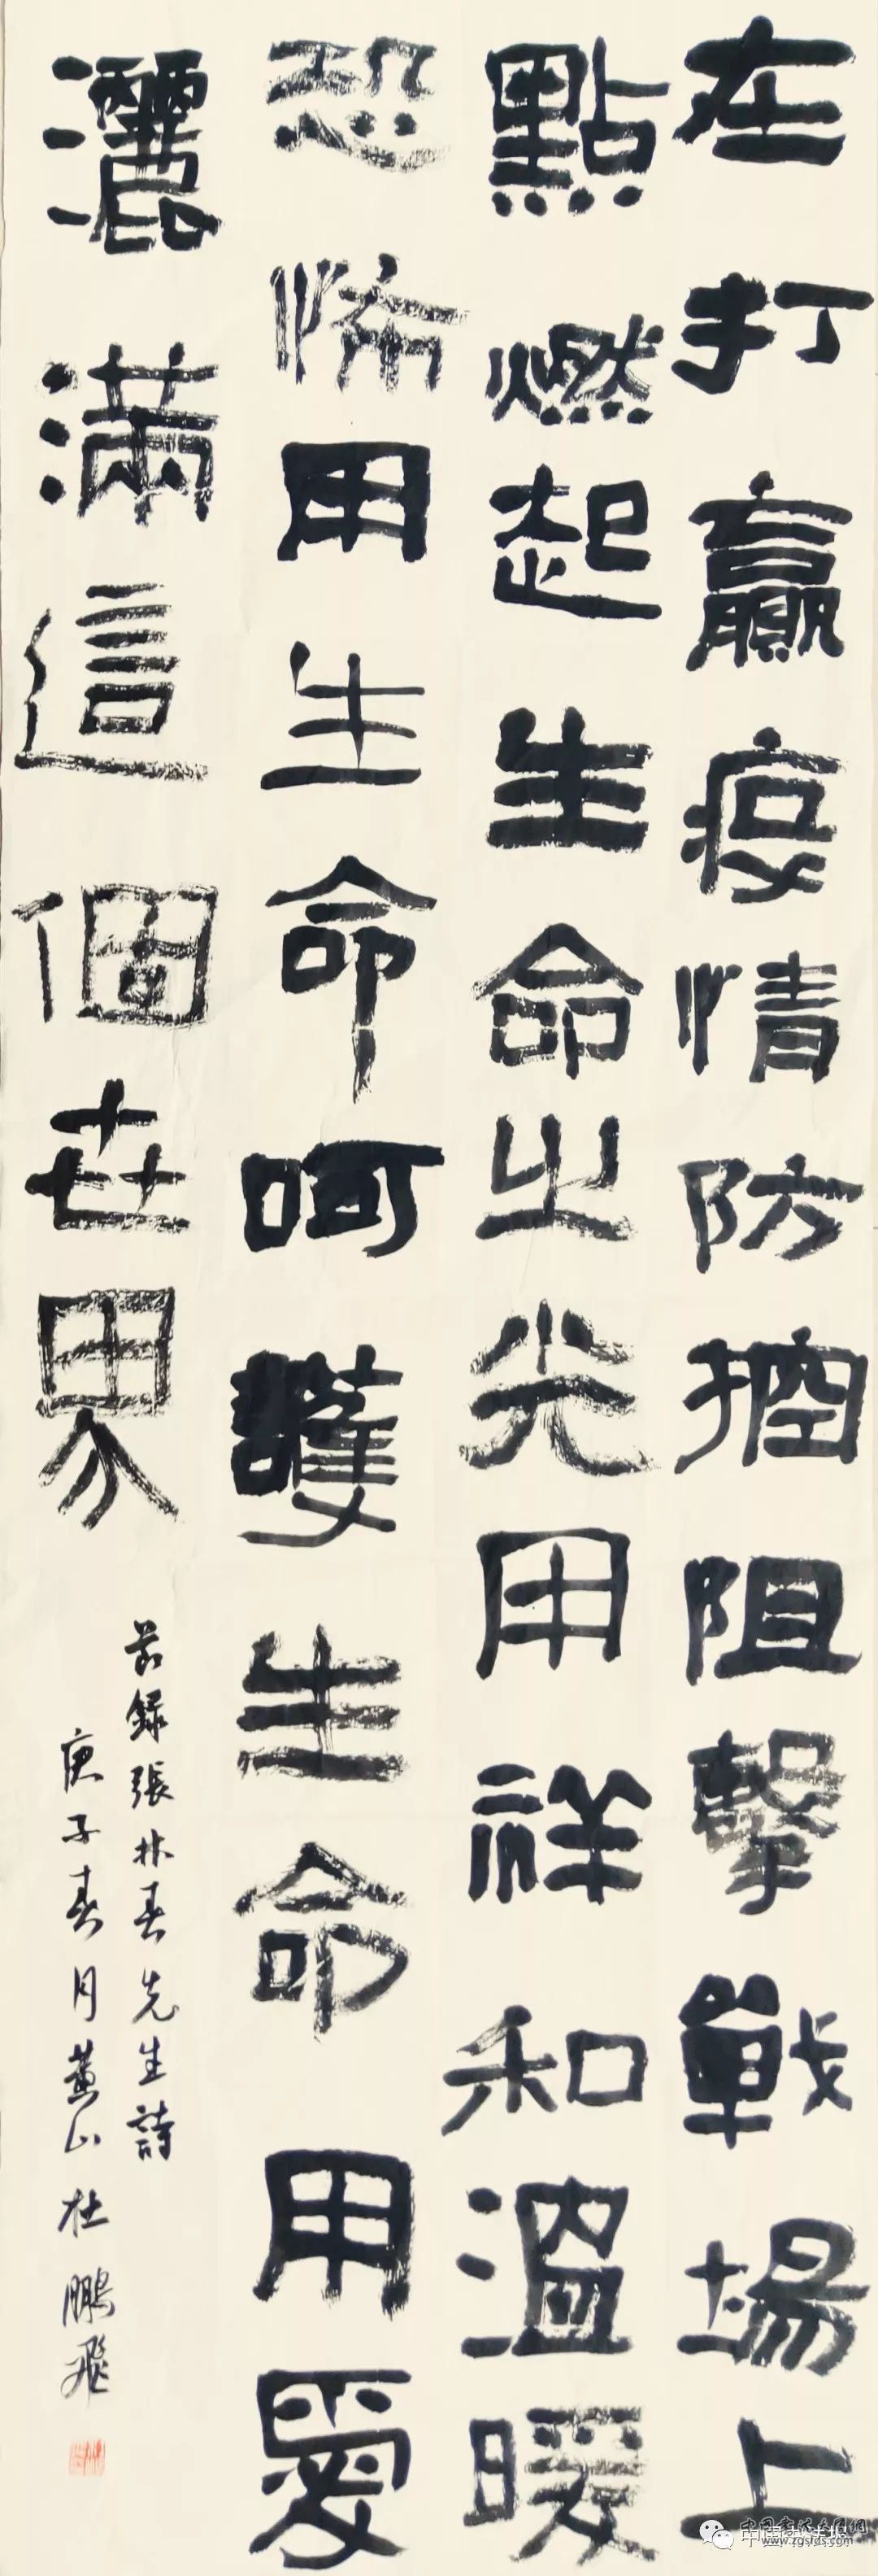 在打贏疫情防控阻擊戰場上
點燃起生命之光用祥和溫暖
恐怖用生命呵護生命用愛
灑滿這個世界
節錄張林春先生詩
庚子春月黃山杜鵬飛
www.zgsfds.com